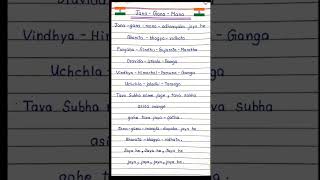 Jana-Gana-Mana
Jana-gana-mana-adhinayaka jaya he
Bharata-bhagya-vidhata
Punjaba-Sindhu-Gujarata-Maratha
Dravida-Utkala-Banga
Vindhya-Himachal-Yamuna-Ganga
Uchchla-jaladhi-Taranga
Tava Subha name jage, tava subha
asisa mange
gahe tava jaya-gatha.
Jana-gana-mangla-dayaka jaya he
Bharata-bhagya-vidhata,
Jaya he, Jaya he, Jaya he
jaya, jaya, jaya, jaya he.